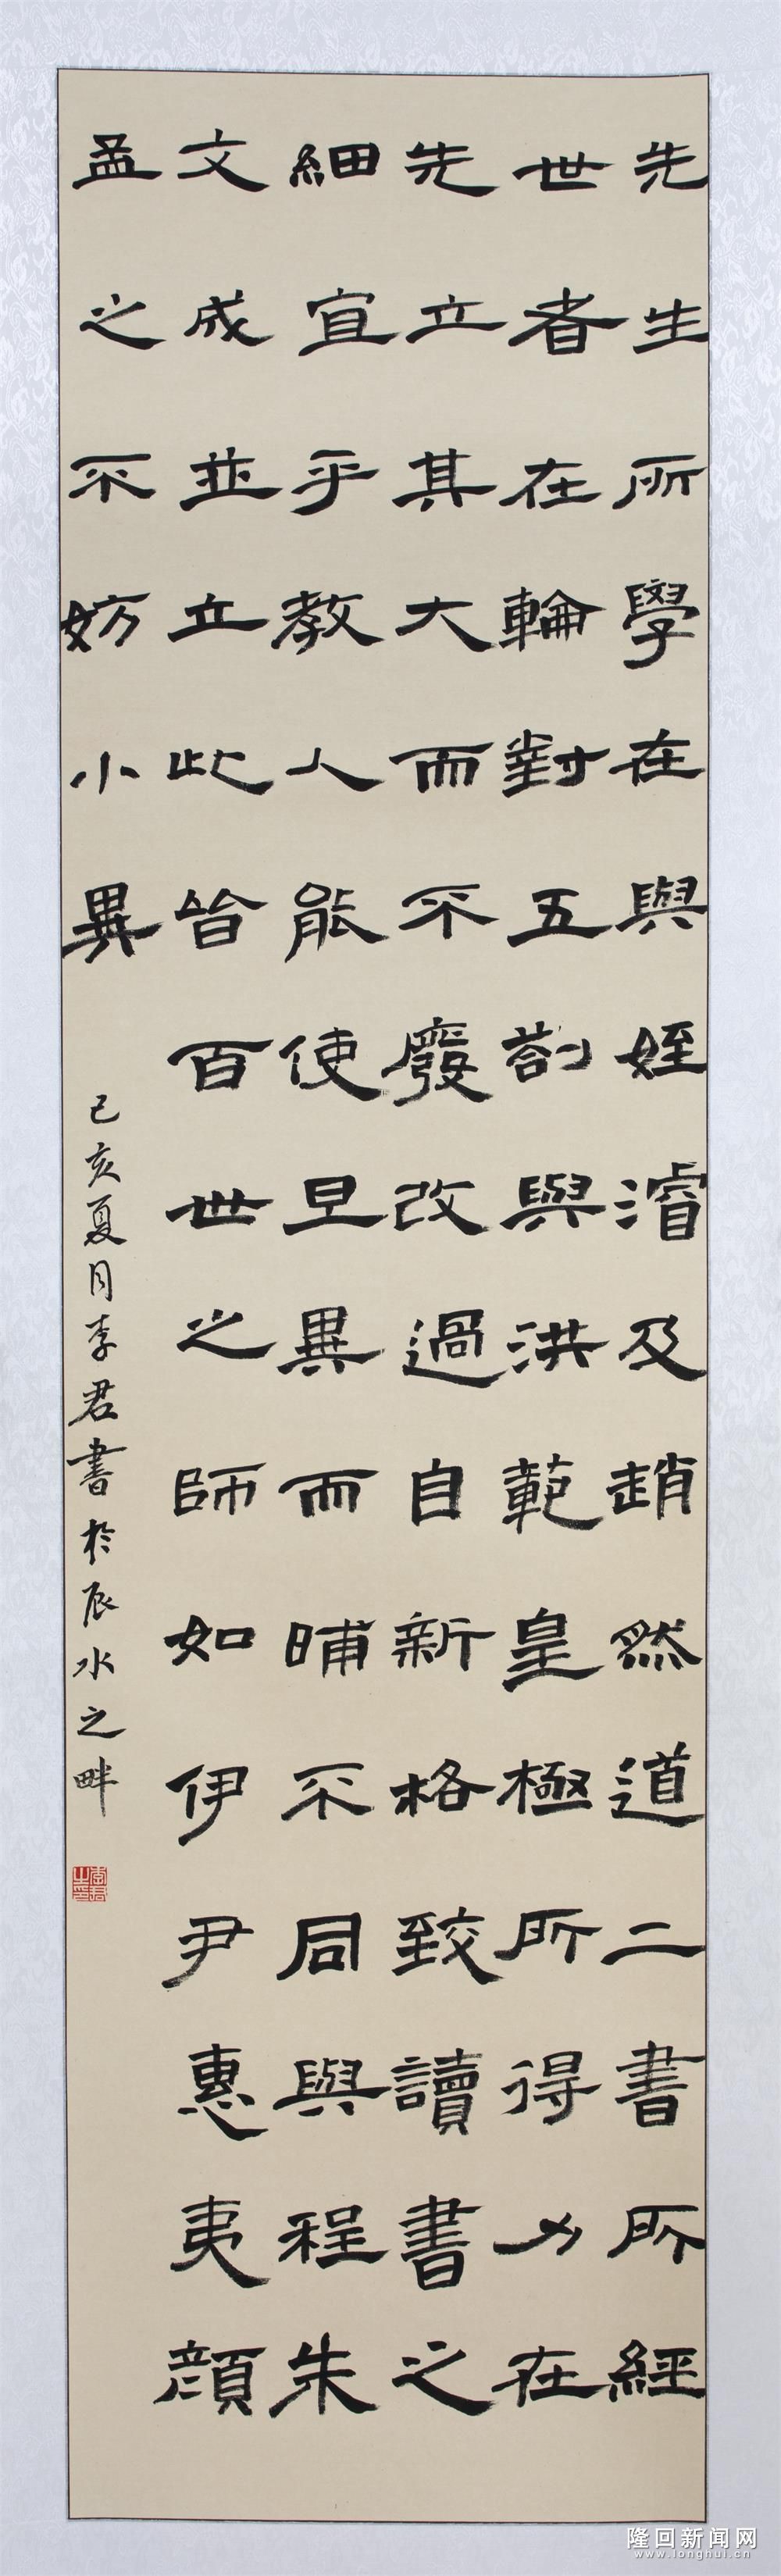 先生所學在與姪濬及趙然道二書所經
世者在輪對五劄與洪範皇極所得力在
先立其大而不廢改過自新格致讀書之
細宜乎教人能使旦異而晡不同與程朱
文成並立此皆百世之師如伊尹惠夷顔
孟之不妨小異
己亥夏月李君書於辰水之畔
李君之印
隆回新闻网
www.longhui.cn